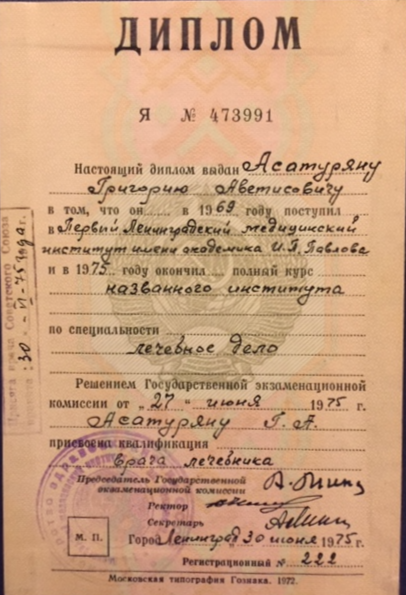 ДИПЛОМ
Я № 473991
Настоящий диплом выдан Асатуряну
Григорию Аветисовичу
в том, что он...... в 1969 году поступил
в Первый Ленинградский медицинский
институт имени академика И.П. Павлова
и в 1975 году окончил .... полный курс
названного института
по специальности
лечебное дело
Решением Государственной экзаменационной
комиссии от „ 27 “ июня 1975 г.
Асатуряну Г. А.
присвоена квалификация
врача лечебника
Председатель Государственной
экзаменационной комиссии
Ректор
Секретарь
М. П.
Город Ленинград 30 июня 1975 г.
Регистрационный № 222
Московская типография Гознака. 1972.
Присяга врача Советского Союза
30 - VI - 75 года г.